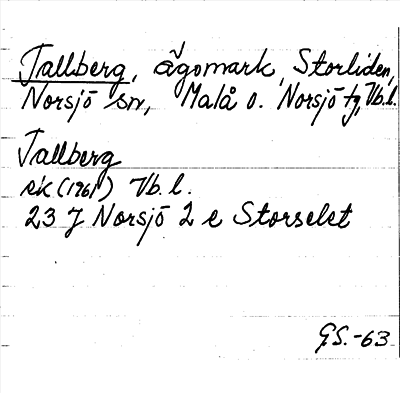 Tallberg, ägomark, Storliden,
Norsjö sn, Malå o. Norsjö tg, Vb. l.
Tallberg
ek (1961) Vb. l.
23 J Norsjö 2 e Storselet
G.S. -63